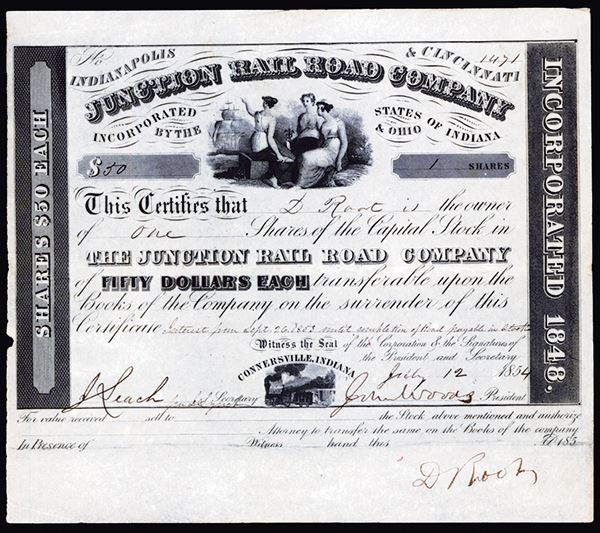 No
1471
INDIANAPOLIS & CINCINNATI
JUNCTION RAIL ROAD COMPANY
INCORPORATED BY THE STATES OF INDIANA & OHIO
SHARES $50 EACH
INCORPORATED 1848.
$50
1 SHARES
This Certifies that D Root is the owner
of One Shares of the Capital Stock in
THE JUNCTION RAIL ROAD COMPANY
of FIFTY DOLLARS EACH transferable upon the
Books of the Company on the surrender of this
Certificate Interest from Sept 26 1853 until completion of Road payable in Stock
Witness the Seal of the Corporation & the Signatures of
the President and Secretary
CONNERSVILLE, INDIANA
July 12 1854
J Leach Secretary
John Woods President
For value received sell to the Stock above mentioned and authorize
Attorney to transfer the same on the Books of the company
In Presence of Witness hand this AD 185
D Root